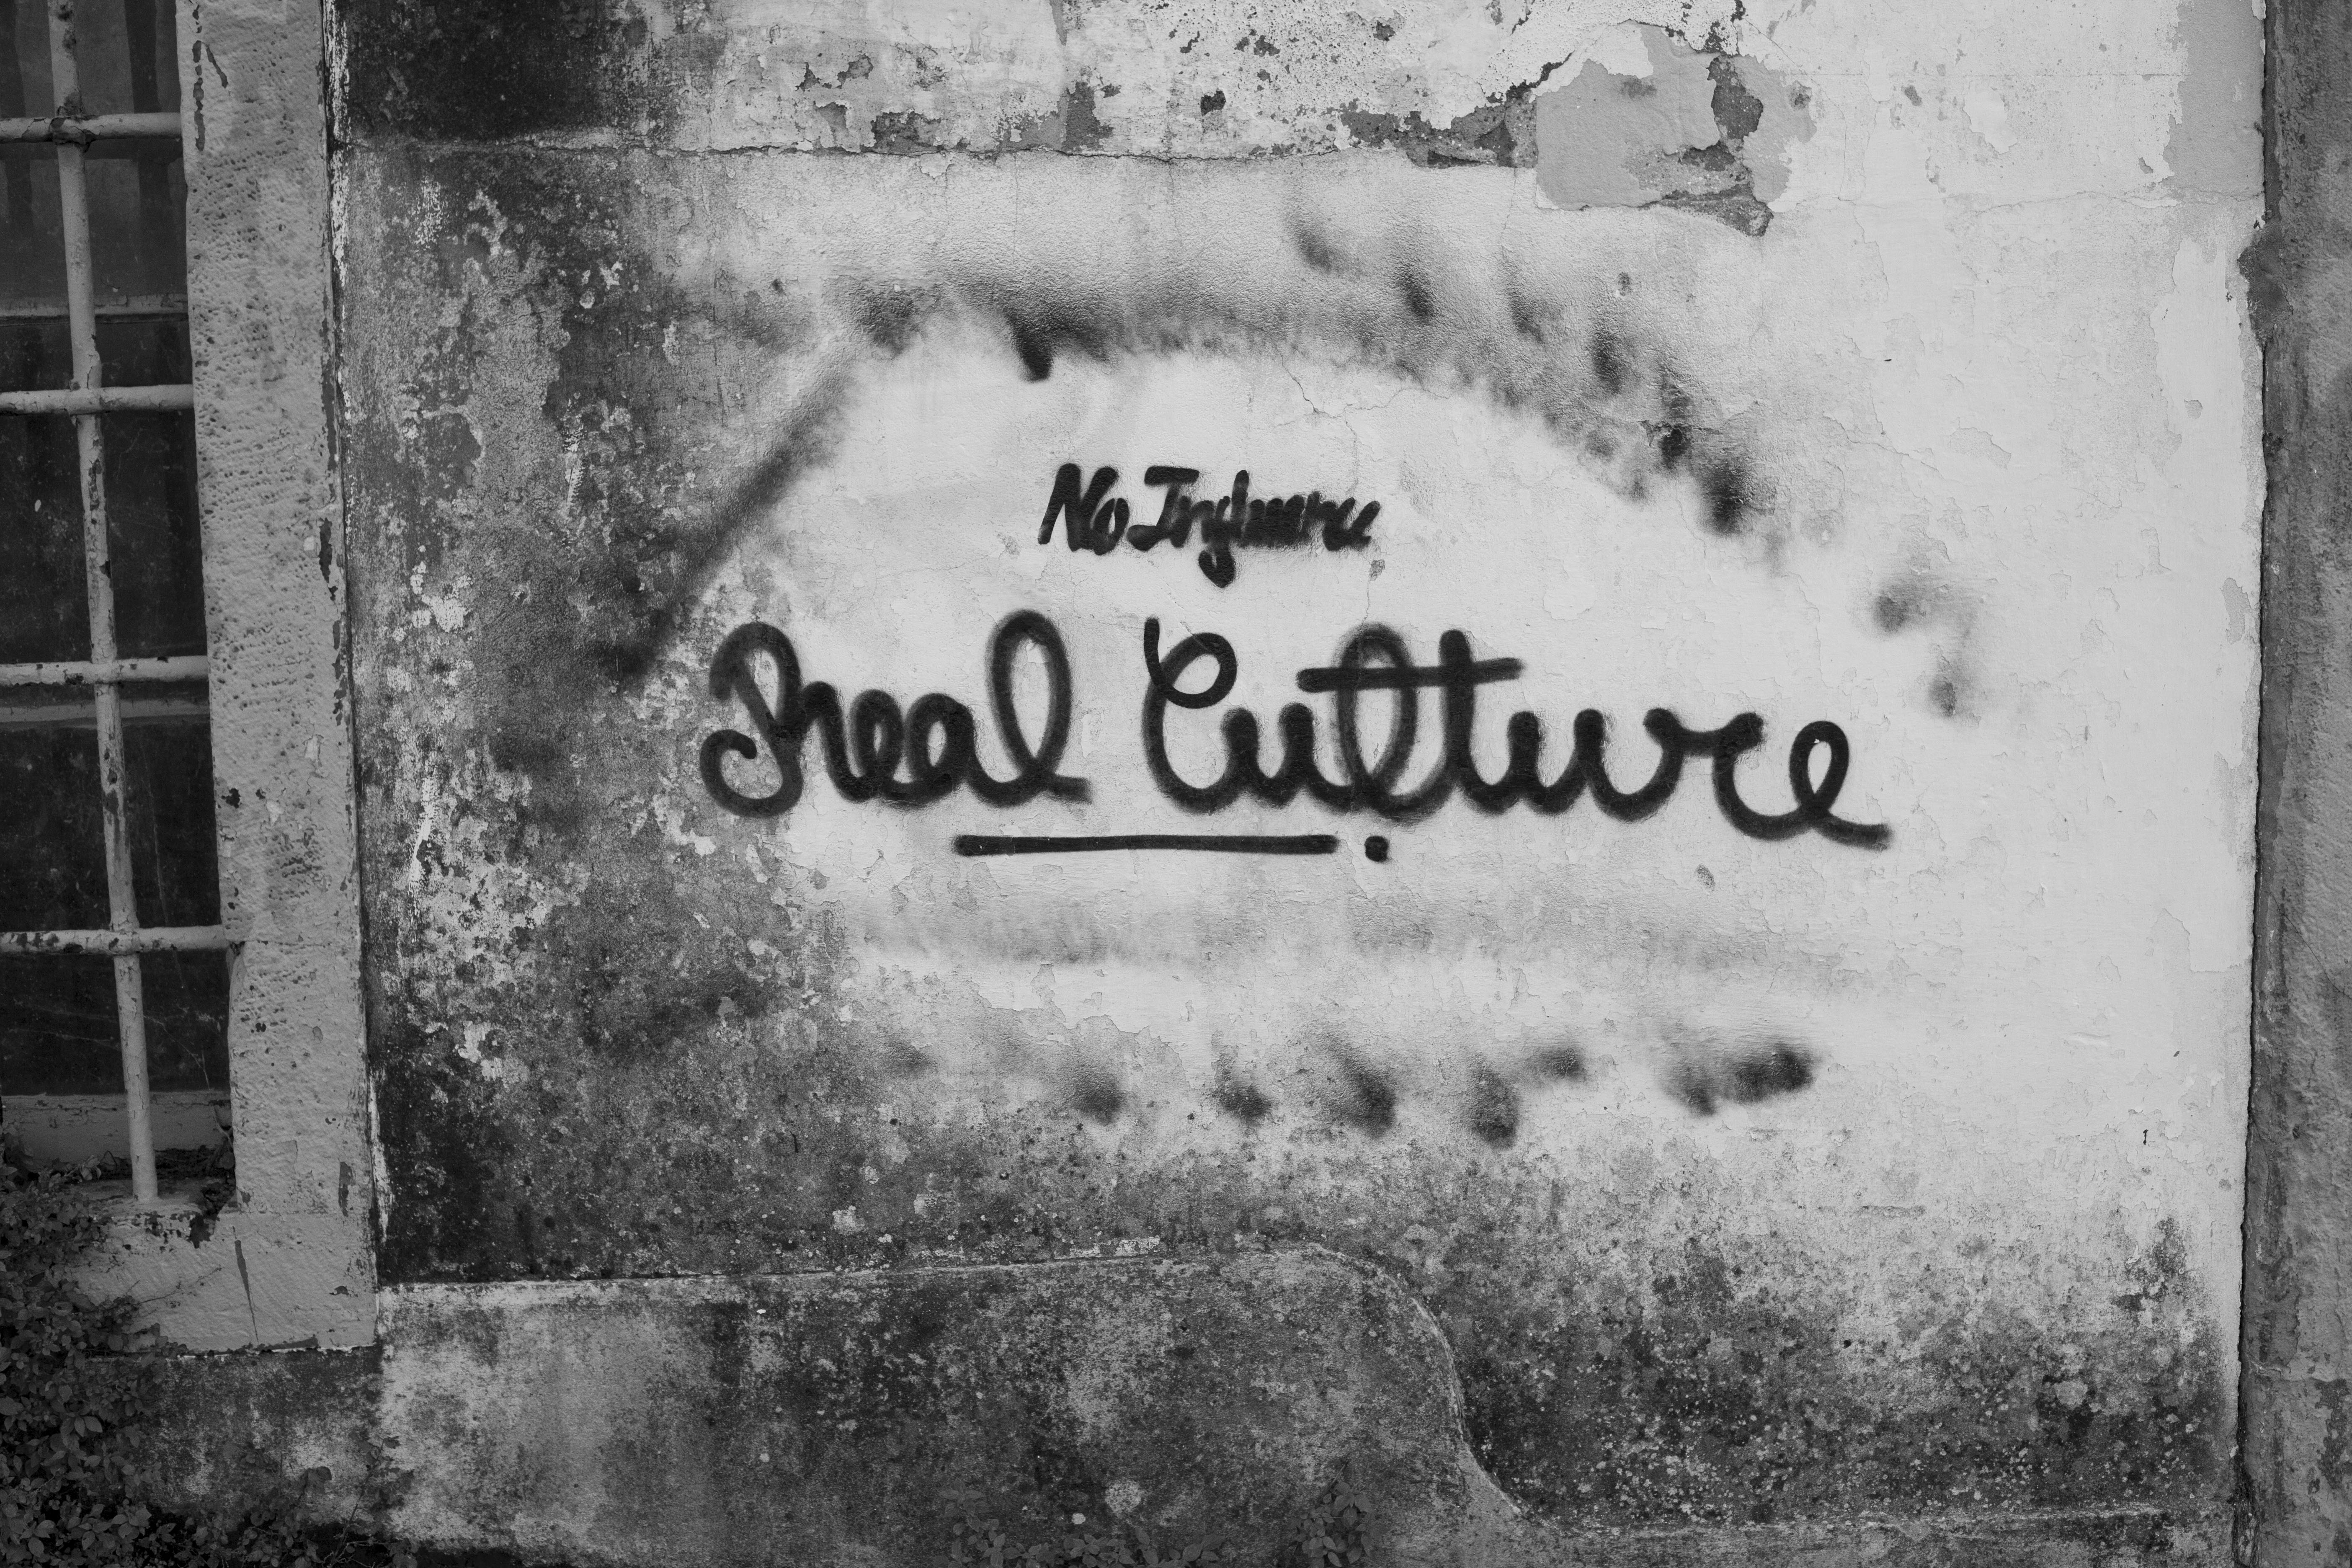 No Influence
Real Culture